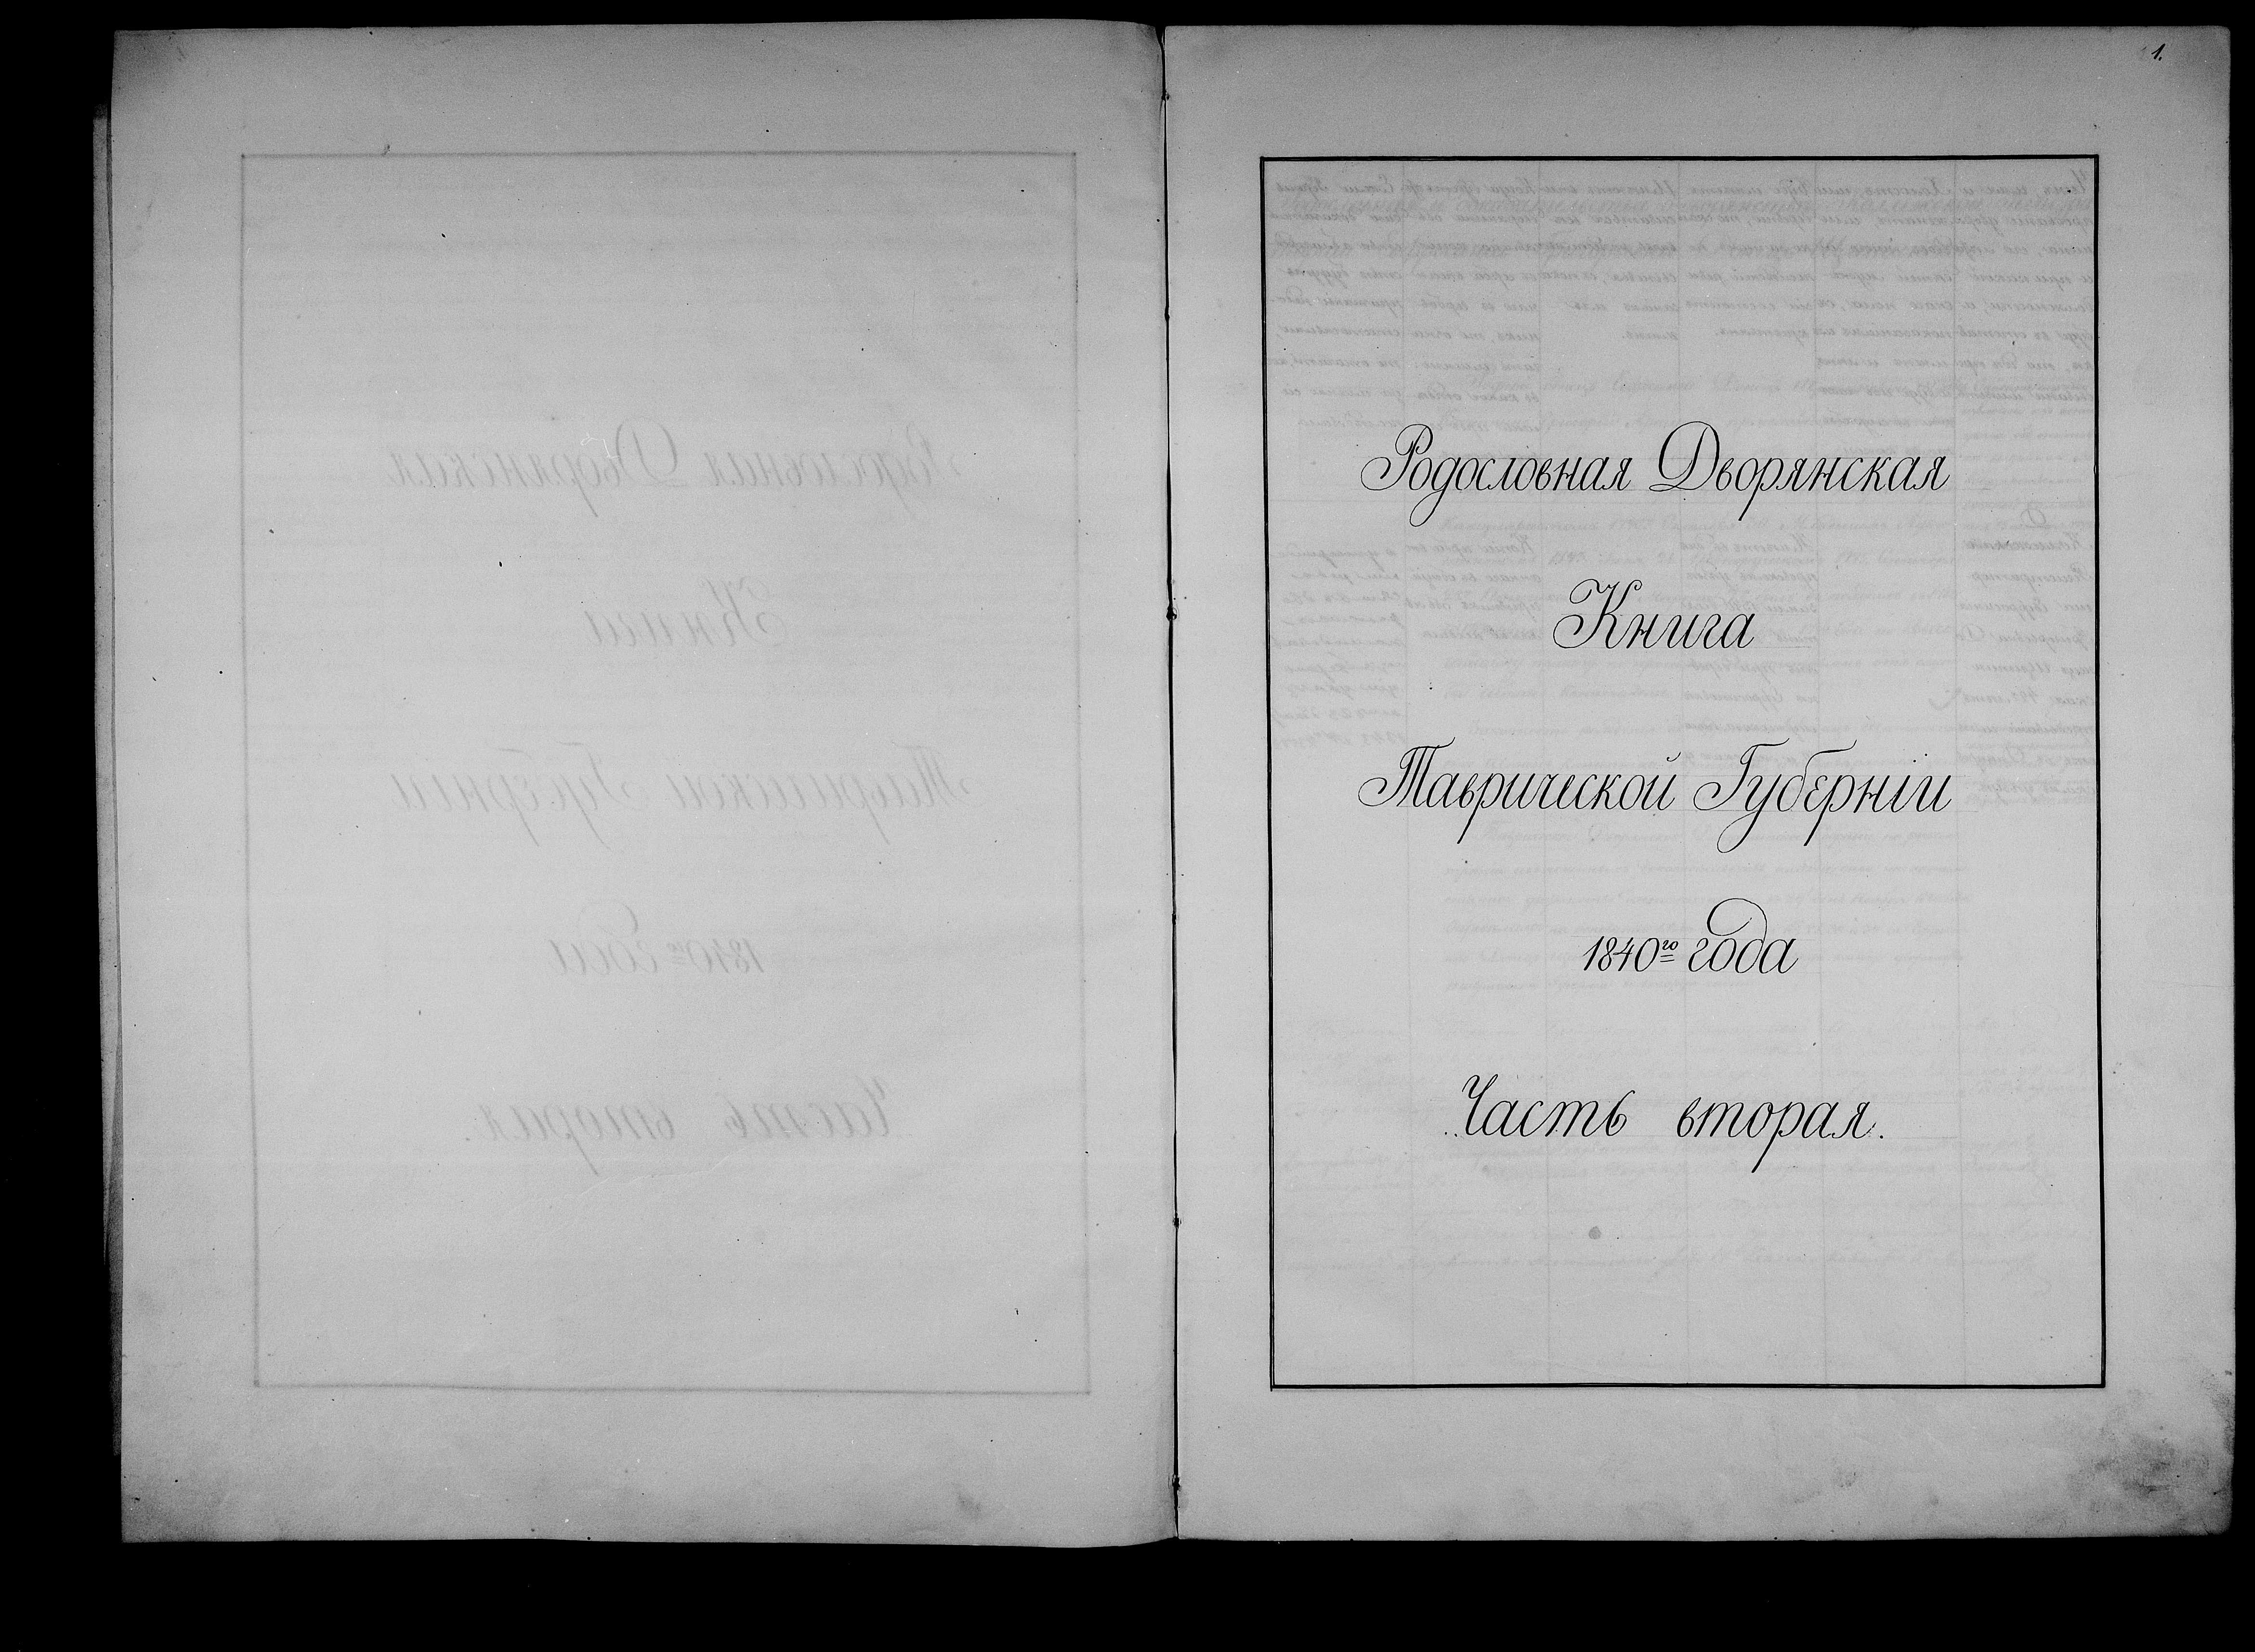 1.
Родословная Дворянская
Книга
Таврической Губерніи
1840го года
Часть вторая.